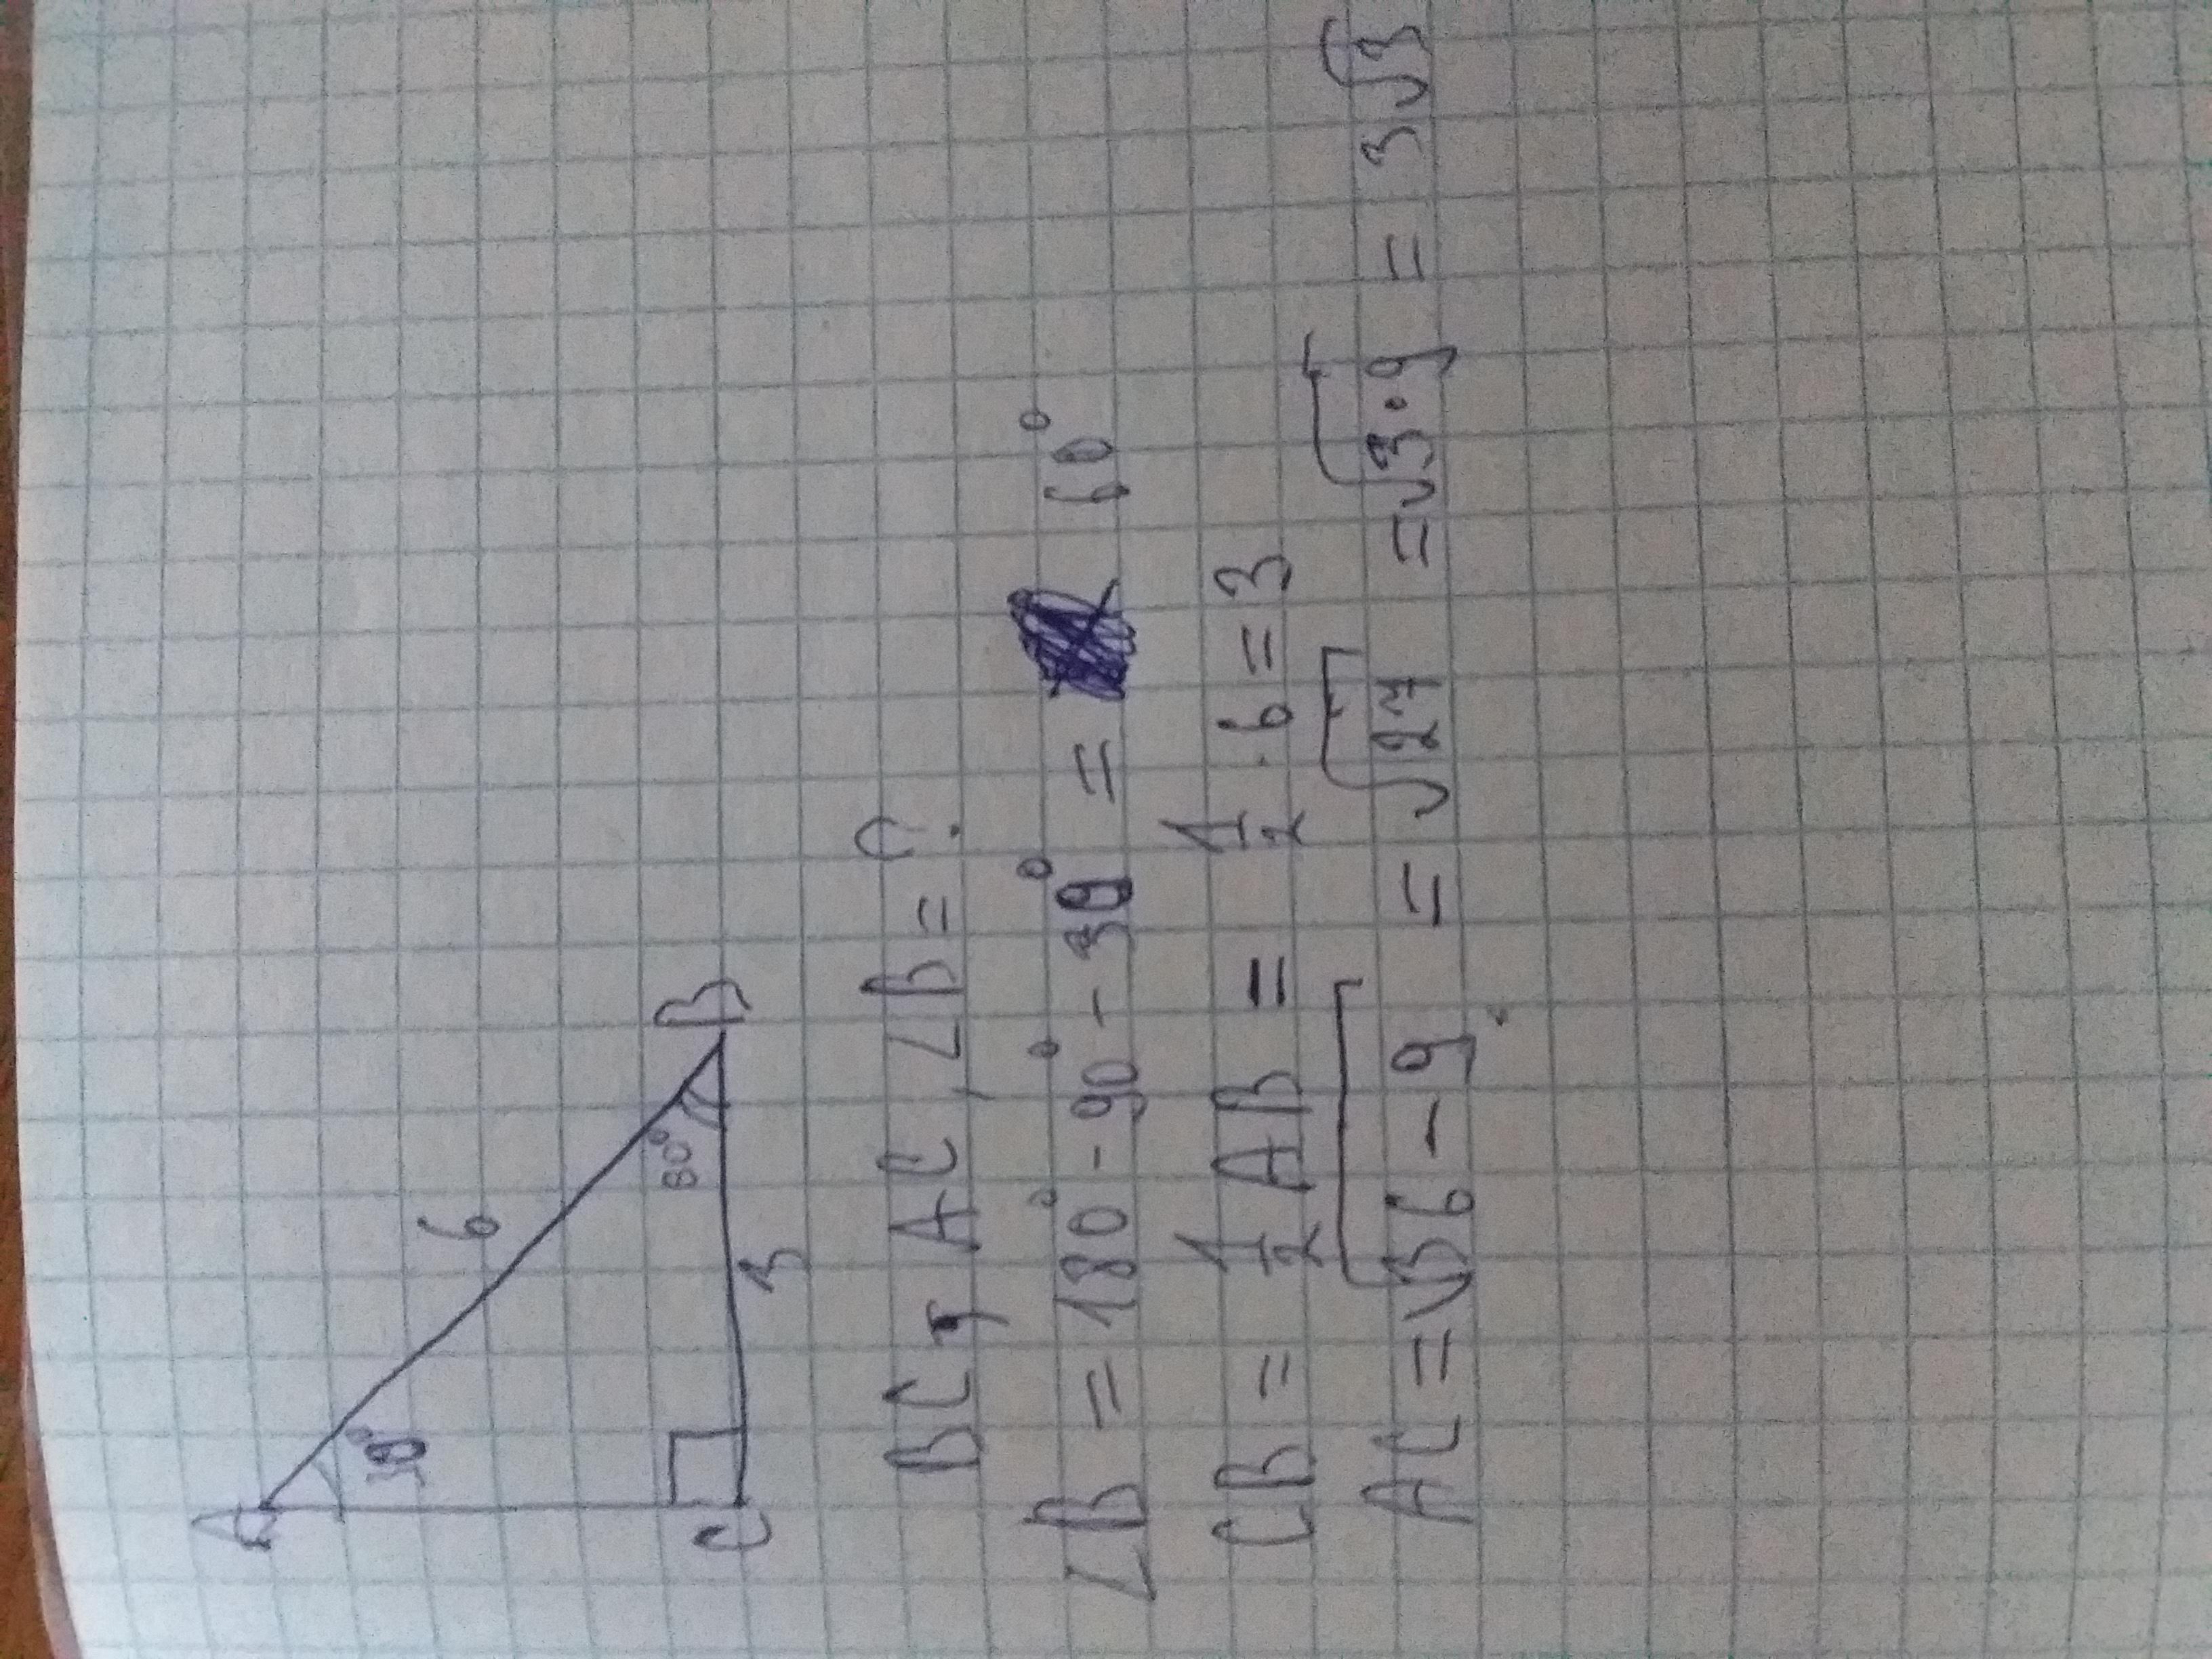 A
30°
6
80°
C
3
B
BC, AC, ∠B = ?
∠B = 180° - 90° - 30° = 60°
CB = 1/2 AB = 1/2 · 6 = 3
AC = √36 - 9 = √27 = √3·9 = 3√3